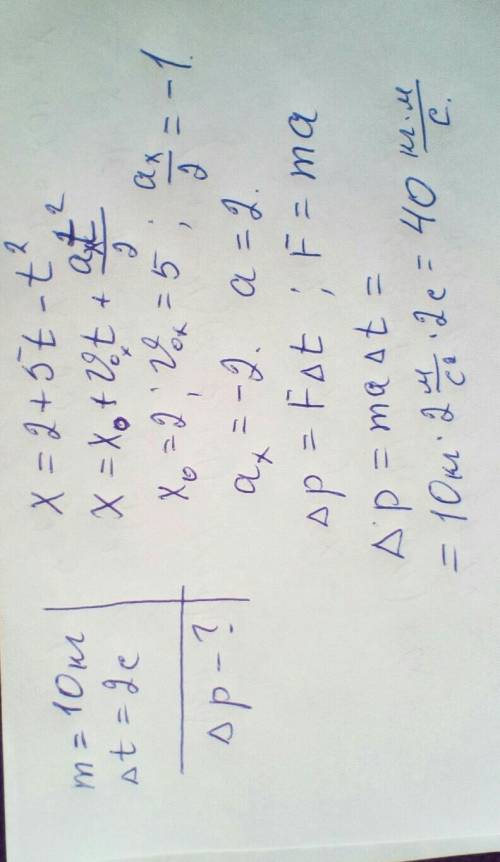 m = 10 кг
Δt = 2с
Δp - ?
x = 2 + 5t - t²
x = x₀ + v₀ₓt + aₓt²/2
x₀ = 2; v₀ₓ = 5; aₓ/2 = -1.
aₓ = -2. a = 2.
Δp = FΔt; F = ma
Δp = maΔt =
= 10кг · 2 м/с² · 2с = 40 кг·м/с.